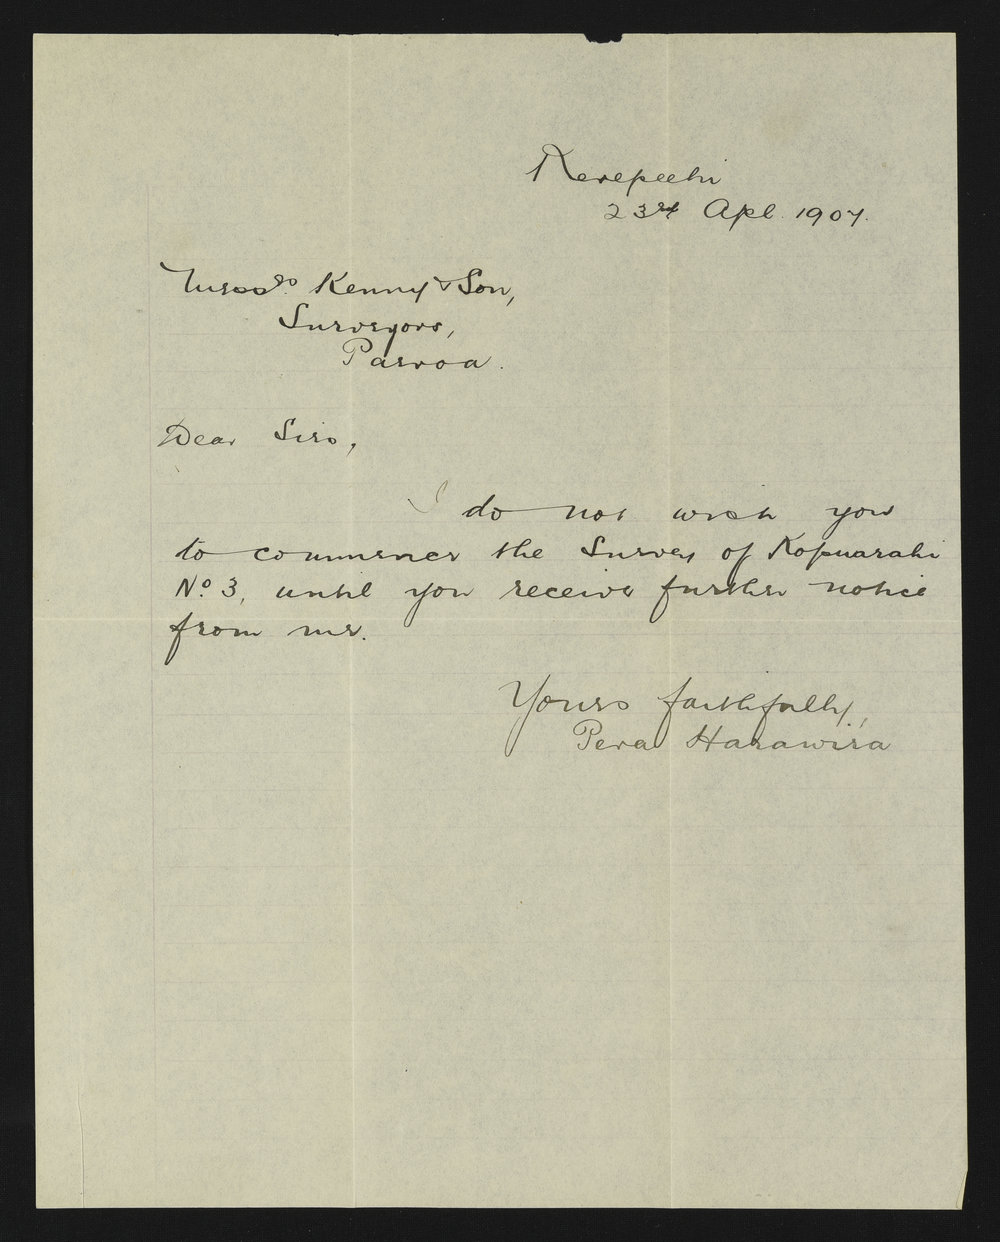 Kerepeehi
23rd Apl. 1907.
Messrs. Kenny & Son,
Surveyors,
Paeroa.
Dear Sirs,
I do not wish you
to commence the Survey of Kopuarahi
No. 3, until you receive further notice
from me.
Yours faithfully,
Pera Harawira